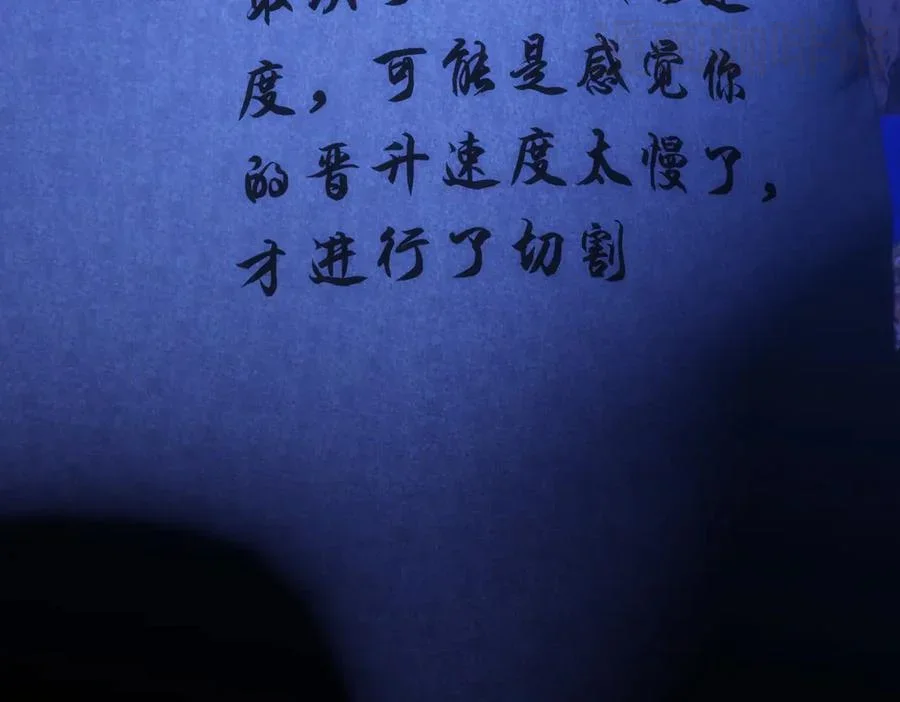 度，可能是感觉你
的晋升速度太慢了，
才进行了切割